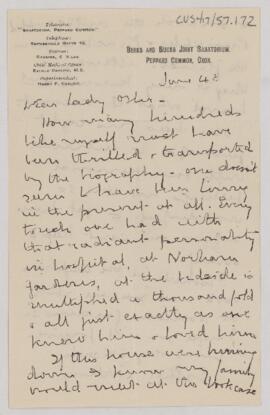 CUS417/57.172
Telegrams:
SANATORIUM, PEPPARD COMMON.
Telephone:
Station:
Chief Medical Officer:
ESTHER CARLING, M.D.
Superintendent:
BERKS AND BUCKS JOINT SANATORIUM,
PEPPARD COMMON, OXON.
June 4th
Dear Lady Osler -
How many hundreds
like myself must have
been thrilled & transported
by the biography - one doesn't
seem to have been living
in the present at all. Every
touch one had with
that radiant personality
in hospital, at Norham
Gardens, at the bedside is
multiplied a thousand fold
& all just exactly as one
knew him & loved him
If this house were burning
down I know my family
would meet at the bookcase